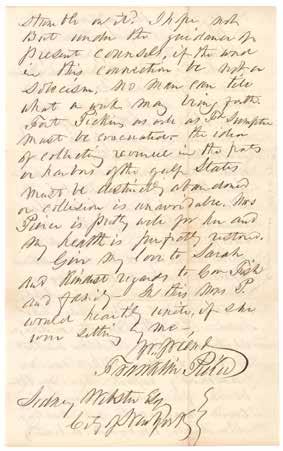 stumble on it? I hope not
But under the guidance of
Present counsels, if the word
in this connection be not a
solecism, no man can tell
what a week may bring forth.
Fort Pickens as well as Ft. Sumpter
must be evacuated & the idea
of collecting revenue in the ports
or harbors of the gulf States
must be distinctly abandoned
or collision is unavoidable. Mrs
Pierce is pretty well for her and
my health is perfectly restored.
Give my love to Sarah
and kindest regards to Gov Fish
and family In this Mrs P.
would heartily unite, if she
were sitting by me,
Yr. friend
Franklin Pierce
Sidney Webster Esq
City of New York